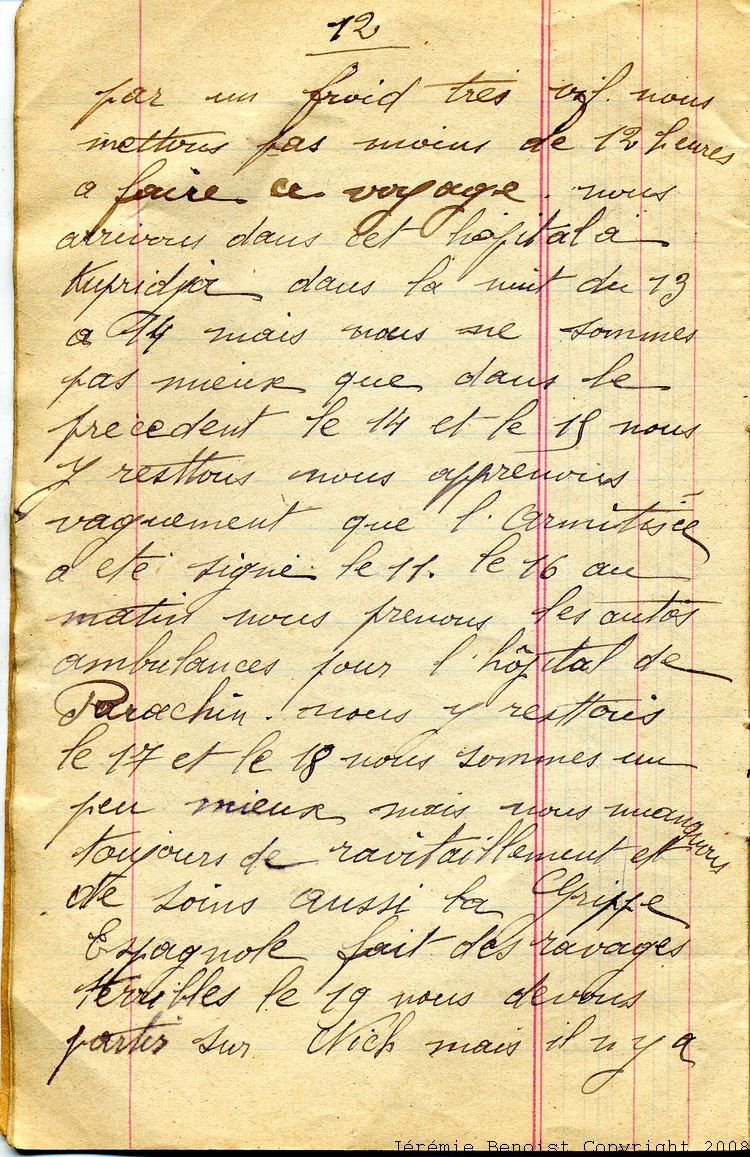 12
par un froid tres vif. nous
mettons pas moins de 12 heures
a faire ce voyage. nous
arrivons dans cet hôpital à
Kupridja dans la nuit du 13
a 14 mais nous ne sommes
pas mieux que dans le
precedent le 14 et le 15 nous
y resttons nous apprenons
vaguement que l'armitisce
a eté signé le 11. le 16 au
matin nous prenons les autos
ambulances pour l'hôpital de
Parachin. nous y resttons
le 17 et le 18 nous sommes un
peu mieux mais nous manquons
toujours de ravitaillement et
de soins aussi la Grippe
Espagnole fait des ravages
terribles le 19 nous devons
partir sur Nich mais il n y a
Jérémie Benoist Copyright 2008